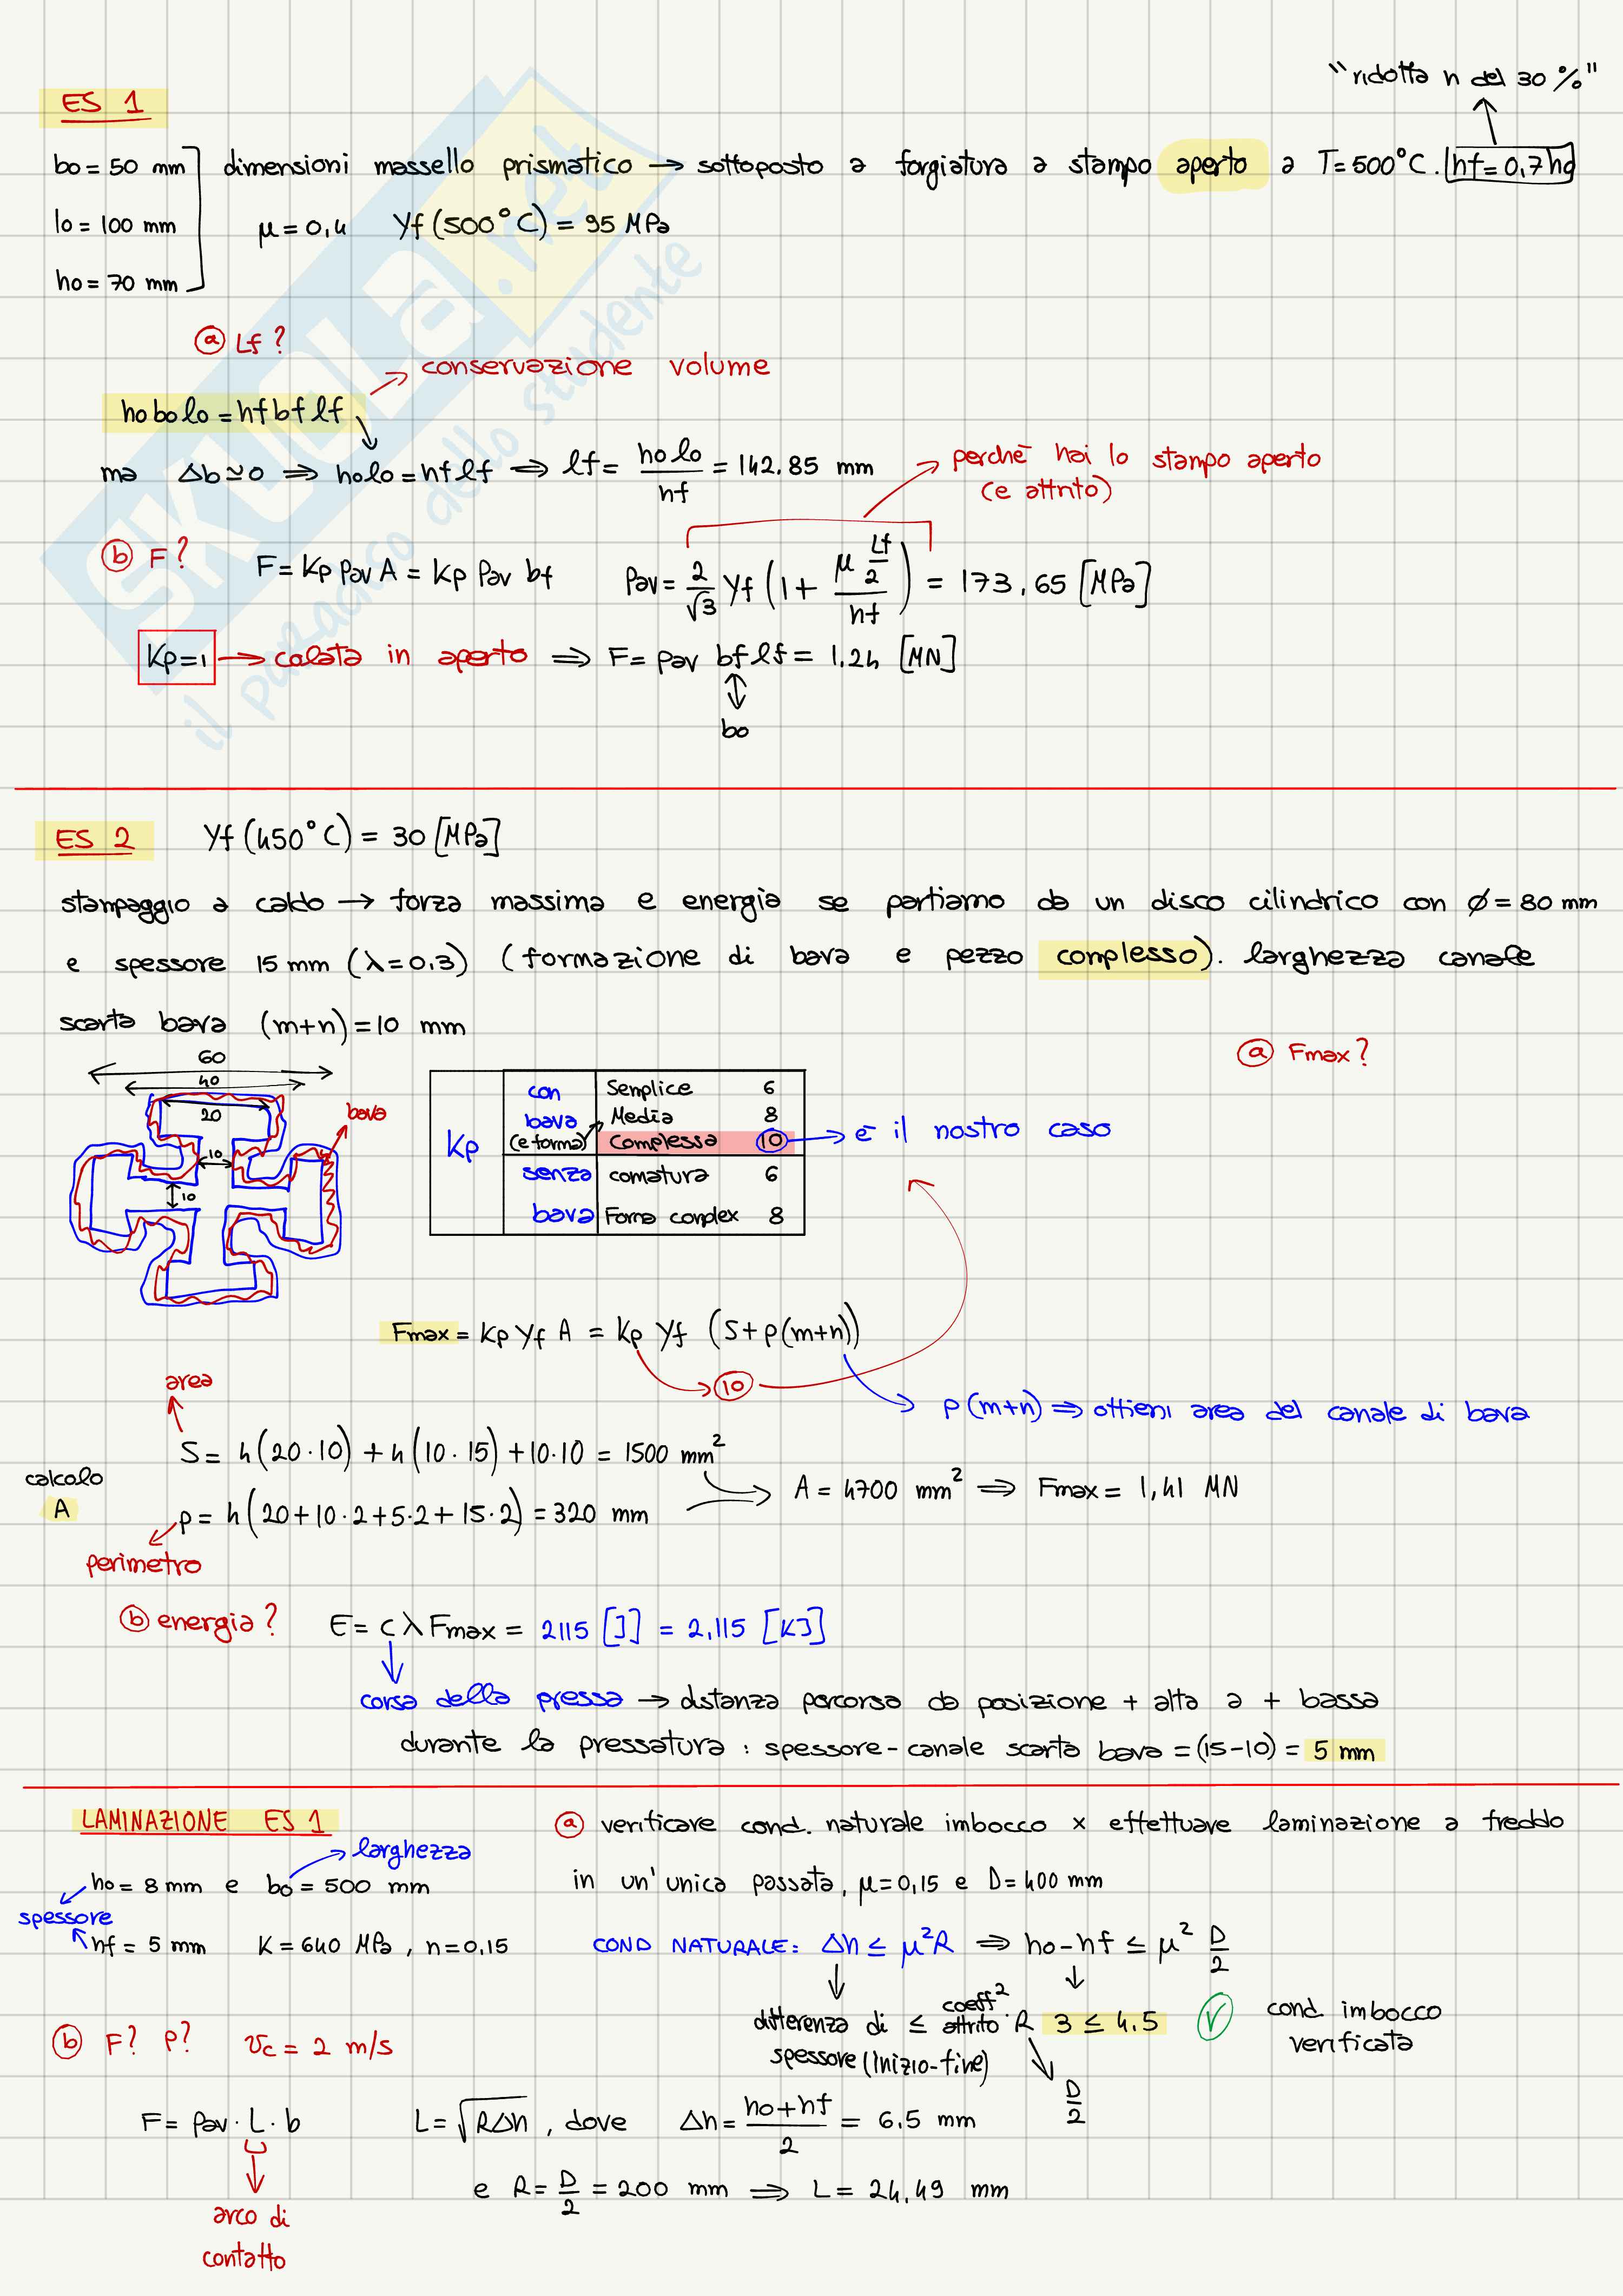 "ridotta h del 30%"
ES 1
bo = 50 mm
lo = 100 mm
ho = 70 mm
dimensioni massello prismatico → sottoposto a forgiatura a stampo aperto a T = 500°C. hf = 0,7 ho
μ = 0,4 Yf (500°C) = 95 MPa
ⓐ Lf?
conservazione volume
ho bo lo = hf bf lf
ma Δb ≃ 0 ⇒ ho lo = hf lf ⇒ lf = ho lo / hf = 142.85 mm
perchè hai lo stampo aperto
(e attrito)
ⓑ F? F = Kp Pav A = Kp Pav bf
Pav = 2/√3 Yf (1 + μ Lf/2 / hf) = 173,65 [MPa]
Kp = 1 → calata in aperto ⇒ F = Pav bf lf = 1.24 [MN]
bo
ES 2 Yf (450°C) = 30 [MPa]
stampaggio a caldo → forza massima e energia se partiamo da un disco cilindrico con ϕ = 80 mm
e spessore 15 mm (λ = 0.3) (formazione di bava e pezzo complesso). larghezza canale
scarta bava (m+n) = 10 mm
60
40
20
10
10
bava
Kp
con bava (e forma)
Semplice 6
Media 8
Complessa 10
senza bava
comatura 6
Forma complex 8
è il nostro caso
ⓐ Fmax?
Fmax = Kp Yf A = Kp Yf (S + p(m+n))
10
p(m+n) ⇒ ottieni area del canale di bava
area
S = 4(20·10) + 4(10·15) + 10·10 = 1500 mm²
calcolo
A
p = 4(20 + 10·2 + 5·2 + 15·2) = 320 mm
A = 4700 mm² ⇒ Fmax = 1,41 MN
perimetro
ⓑ energia? E = c λ Fmax = 2115 [J] = 2,115 [KJ]
corsa della pressa → distanza percorsa da posizione + alta a + bassa
durante la pressatura : spessore - canale scarta bava = (15-10) = 5 mm
LAMINAZIONE ES 1
larghezza
ho = 8 mm e bo = 500 mm
spessore
hf = 5 mm K = 640 MPa , n = 0.15
ⓐ verificare cond. naturale imbocco x effettuare laminazione a freddo
in un'unica passata, μ = 0,15 e D = 400 mm
COND NATURALE: Δh ≤ μ²R ⇒ ho - hf ≤ μ² D/2
differenza di spessore (inizio-fine) ≤ coeff² attrito · R
3 ≤ 4.5
D/2
cond. imbocco
verificata
ⓑ F? P? vc = 2 m/s
F = Pav · L · b
L = √RΔh , dove Δh = ho+hf / 2 = 6.5 mm
e R = D/2 = 200 mm ⇒ L = 24,49 mm
arco di
contatto
SKUOLA.net
il paradiso dello studente